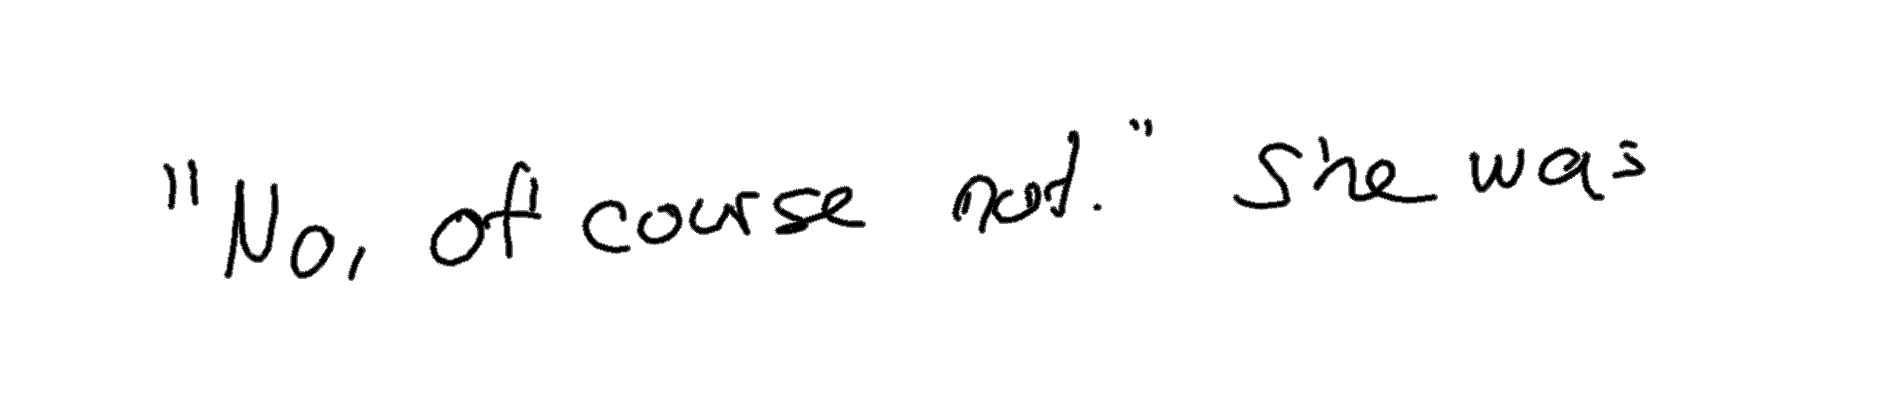 "No, of course not." She was